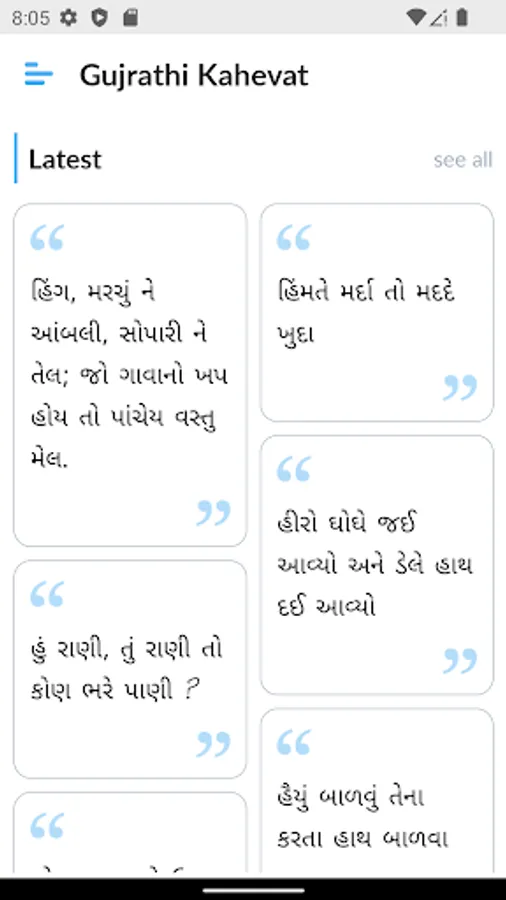 8:05
Gujrathi Kahevat
Latest
see all
“
હિંગ, મરચું ને
આંબલી, સોપારી ને
તેલ; જો ગાવાનો ખપ
હોય તો પાંચેય વસ્તુ
મેલ.
”
“
હિંમતે મર્દા તો મદદે
ખુદા
”
“
હીરો ઘોઘે જઈ
આવ્યો અને ડેલે હાથ
દઈ આવ્યો
”
“
હું રાણી, તું રાણી તો
કોણ ભરે પાણી ?
”
“
હૈયું બાળવું તેના
કરતા હાથ બાળવા
“